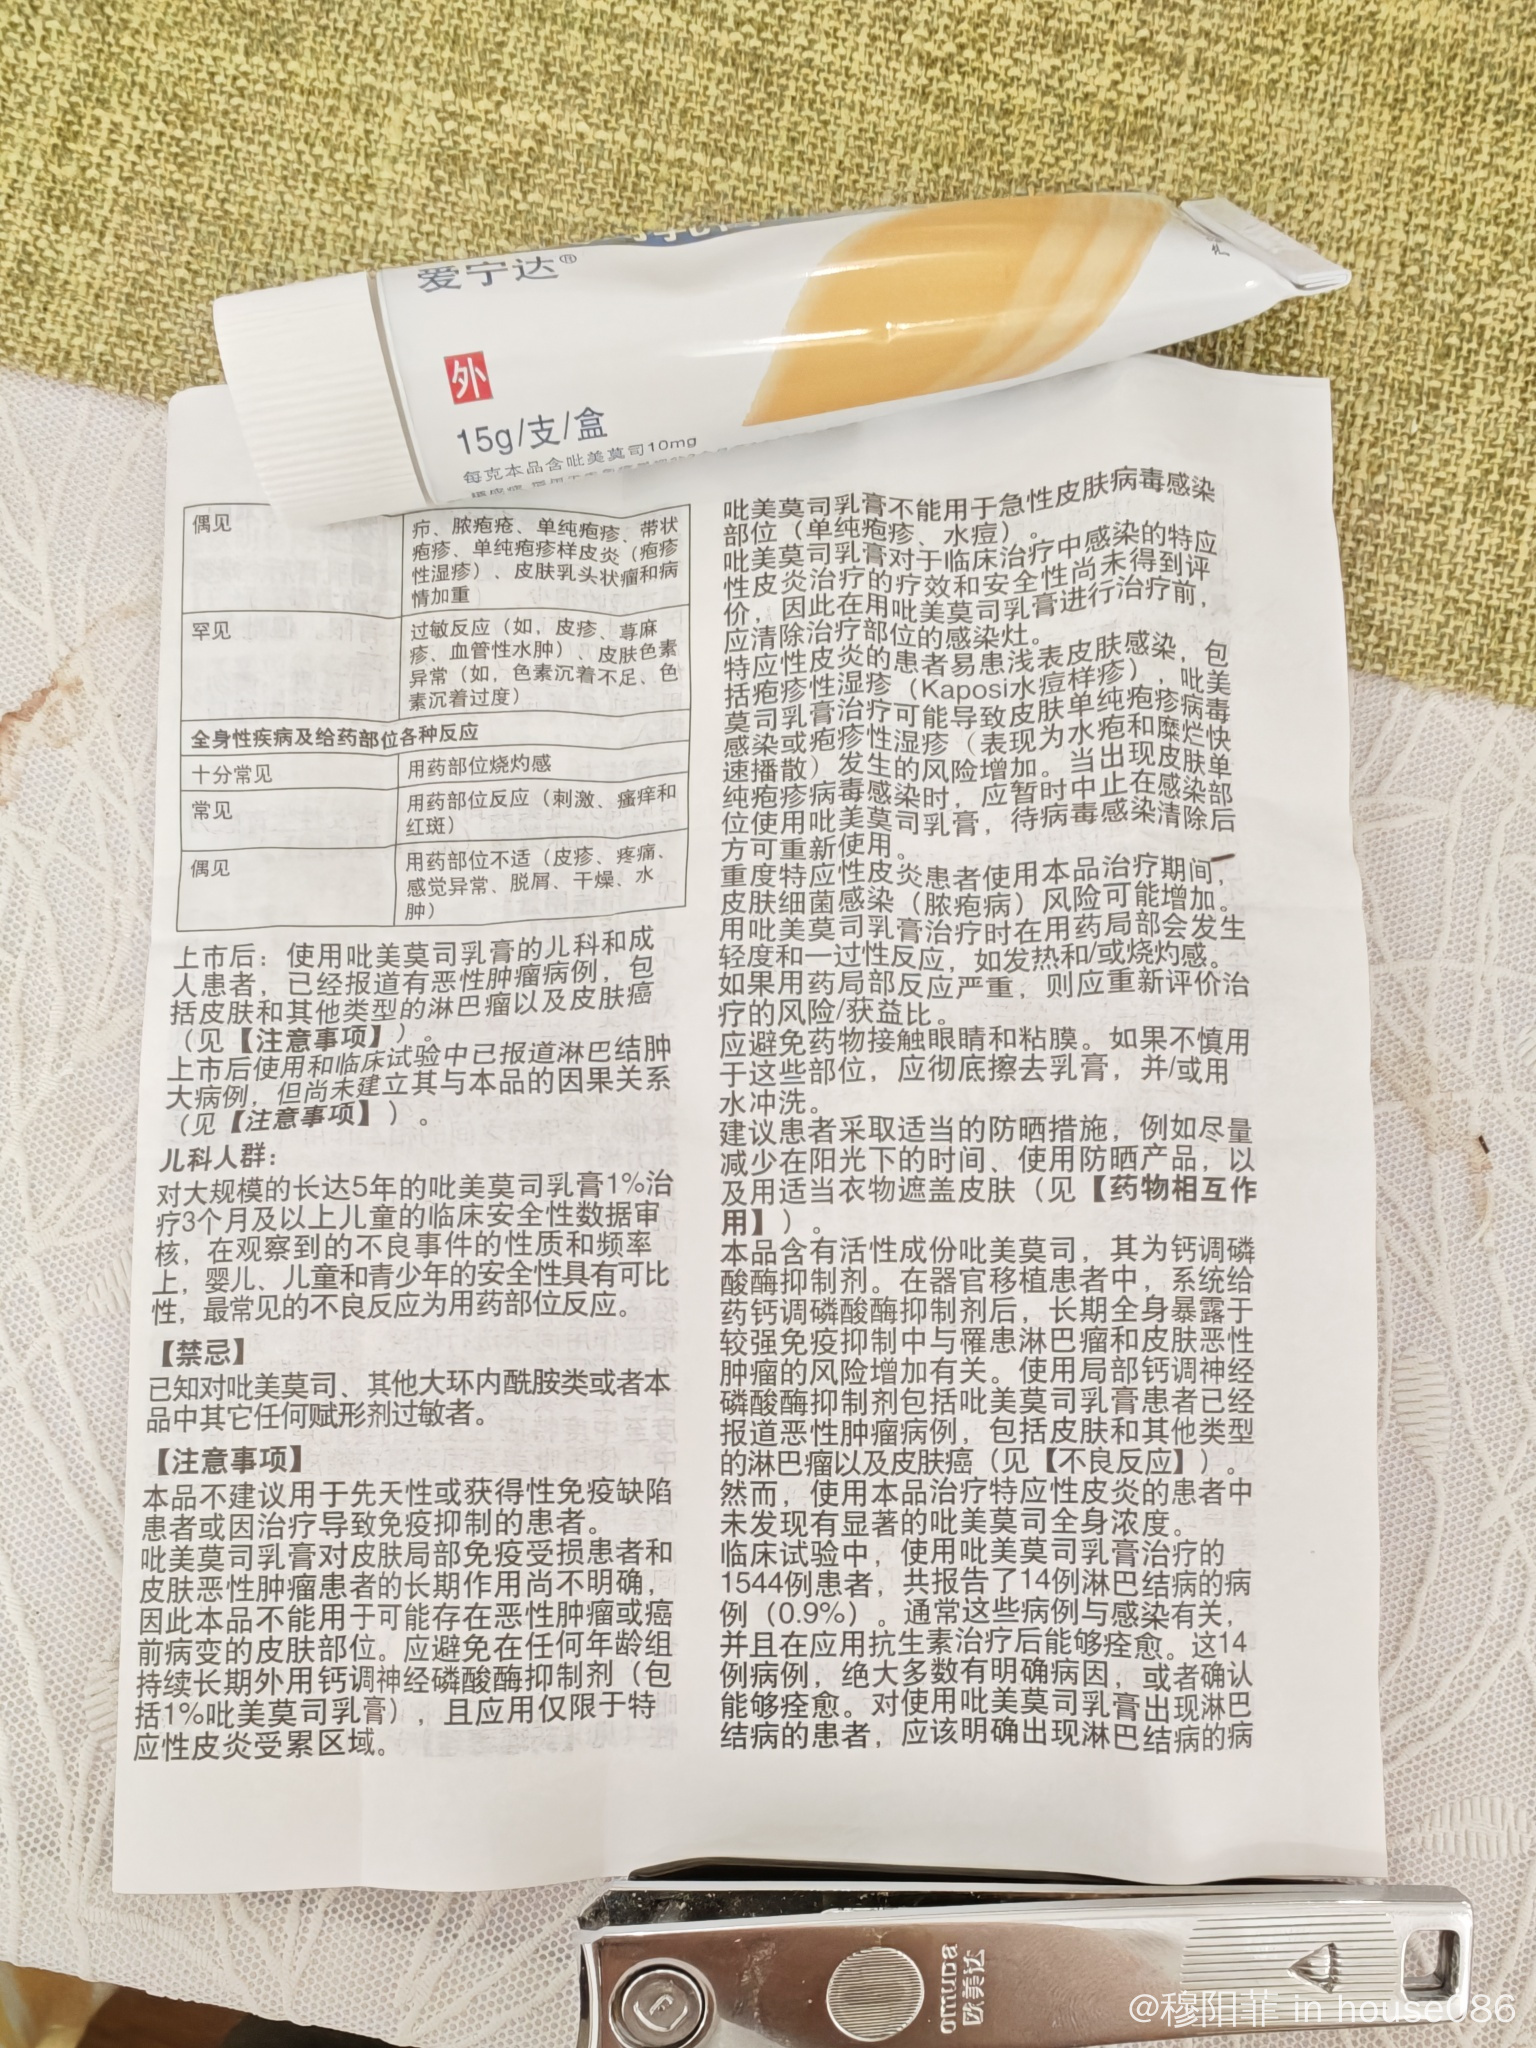 爱宁达®
外
15g/支/盒
每克本品含吡美莫司10mg
偶见
疖、脓疱疮、单纯疱疹、带状
疱疹、单纯疱疹样皮炎（疱疹
性湿疹）、皮肤乳头状瘤和病
情加重
罕见
过敏反应（如，皮疹、荨麻
疹、血管性水肿）、皮肤色素
异常（如，色素沉着不足、色
素沉着过度）
全身性疾病及给药部位各种反应
十分常见
用药部位烧灼感
常见
用药部位反应（刺激、瘙痒和
红斑）
偶见
用药部位不适（皮疹、疼痛、
感觉异常、脱屑、干燥、水
肿）
上市后：使用吡美莫司乳膏的儿科和成
人患者，已经报道有恶性肿瘤病例，包
括皮肤和其他类型的淋巴瘤以及皮肤癌
（见【注意事项】）。
上市后使用和临床试验中已报道淋巴结肿
大病例，但尚未建立其与本品的因果关系
（见【注意事项】）。
儿科人群：
对大规模的长达5年的吡美莫司乳膏1%治
疗3个月及以上儿童的临床安全性数据审
核，在观察到的不良事件的性质和频率
上，婴儿、儿童和青少年的安全性具有可比
性，最常见的不良反应为用药部位反应。
【禁忌】
已知对吡美莫司、其他大环内酰胺类或者本
品中其它任何赋形剂过敏者。
【注意事项】
本品不建议用于先天性或获得性免疫缺陷
患者或因治疗导致免疫抑制的患者。
吡美莫司乳膏对皮肤局部免疫受损患者和
皮肤恶性肿瘤患者的长期作用尚不明确，
因此本品不能用于可能存在恶性肿瘤或癌
前病变的皮肤部位。应避免在任何年龄组
持续长期外用钙调神经磷酸酶抑制剂（包
括1%吡美莫司乳膏），且应用仅限于特
应性皮炎受累区域。
吡美莫司乳膏不能用于急性皮肤病毒感染
部位（单纯疱疹、水痘）。
吡美莫司乳膏对于临床治疗中感染的特应
性皮炎治疗的疗效和安全性尚未得到评
价，因此在用吡美莫司乳膏进行治疗前，
应清除治疗部位的感染灶。
特应性皮炎的患者易患浅表皮肤感染，包
括疱疹性湿疹（Kaposi水痘样疹），吡美
莫司乳膏治疗可能导致皮肤单纯疱疹病毒
感染或疱疹性湿疹（表现为水疱和糜烂快
速播散）发生的风险增加。当出现皮肤单
纯疱疹病毒感染时，应暂时中止在感染部
位使用吡美莫司乳膏，待病毒感染清除后
方可重新使用。
重度特应性皮炎患者使用本品治疗期间，
皮肤细菌感染（脓疱病）风险可能增加。
用吡美莫司乳膏治疗时在用药局部会发生
轻度和一过性反应，如发热和/或烧灼感。
如果用药局部反应严重，则应重新评价治
疗的风险/获益比。
应避免药物接触眼睛和粘膜。如果不慎用
于这些部位，应彻底擦去乳膏，并/或用
水冲洗。
建议患者采取适当的防晒措施，例如尽量
减少在阳光下的时间、使用防晒产品，以
及用适当衣物遮盖皮肤（见【药物相互作
用】）。
本品含有活性成份吡美莫司，其为钙调磷
酸酶抑制剂。在器官移植患者中，系统给
药钙调磷酸酶抑制剂后，长期全身暴露于
较强免疫抑制中与罹患淋巴瘤和皮肤恶性
肿瘤的风险增加有关。使用局部钙调神经
磷酸酶抑制剂包括吡美莫司乳膏患者已经
报道恶性肿瘤病例，包括皮肤和其他类型
的淋巴瘤以及皮肤癌（见【不良反应】）。
然而，使用本品治疗特应性皮炎的患者中
未发现有显著的吡美莫司全身浓度。
临床试验中，使用吡美莫司乳膏治疗的
1544例患者，共报告了14例淋巴结病的病
例（0.9%）。通常这些病例与感染有关，
并且在应用抗生素治疗后能够痊愈。这14
例病例，绝大多数有明确病因，或者确认
能够痊愈。对使用吡美莫司乳膏出现淋巴
结病的患者，应该明确出现淋巴结病的病
omuda
欧美达
@穆阳菲 in house086